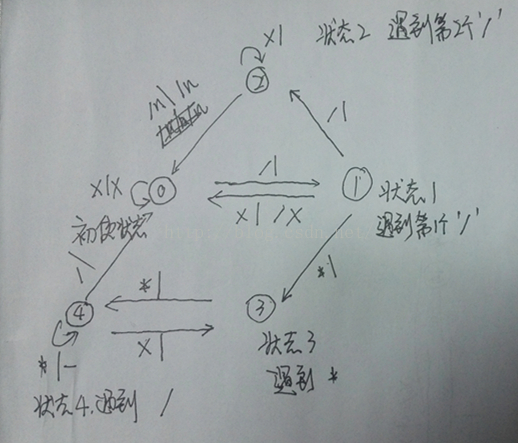 x|
状态2 遇到第2个'/'
②
\n|\n
/|
x|x
⓪
/|
x|/x
①
状态1
遇到第1个'/'
初始状态
*|
/|
④
*|
x|
③
*|-
状态3
遇到 *
状态4.遇到 /